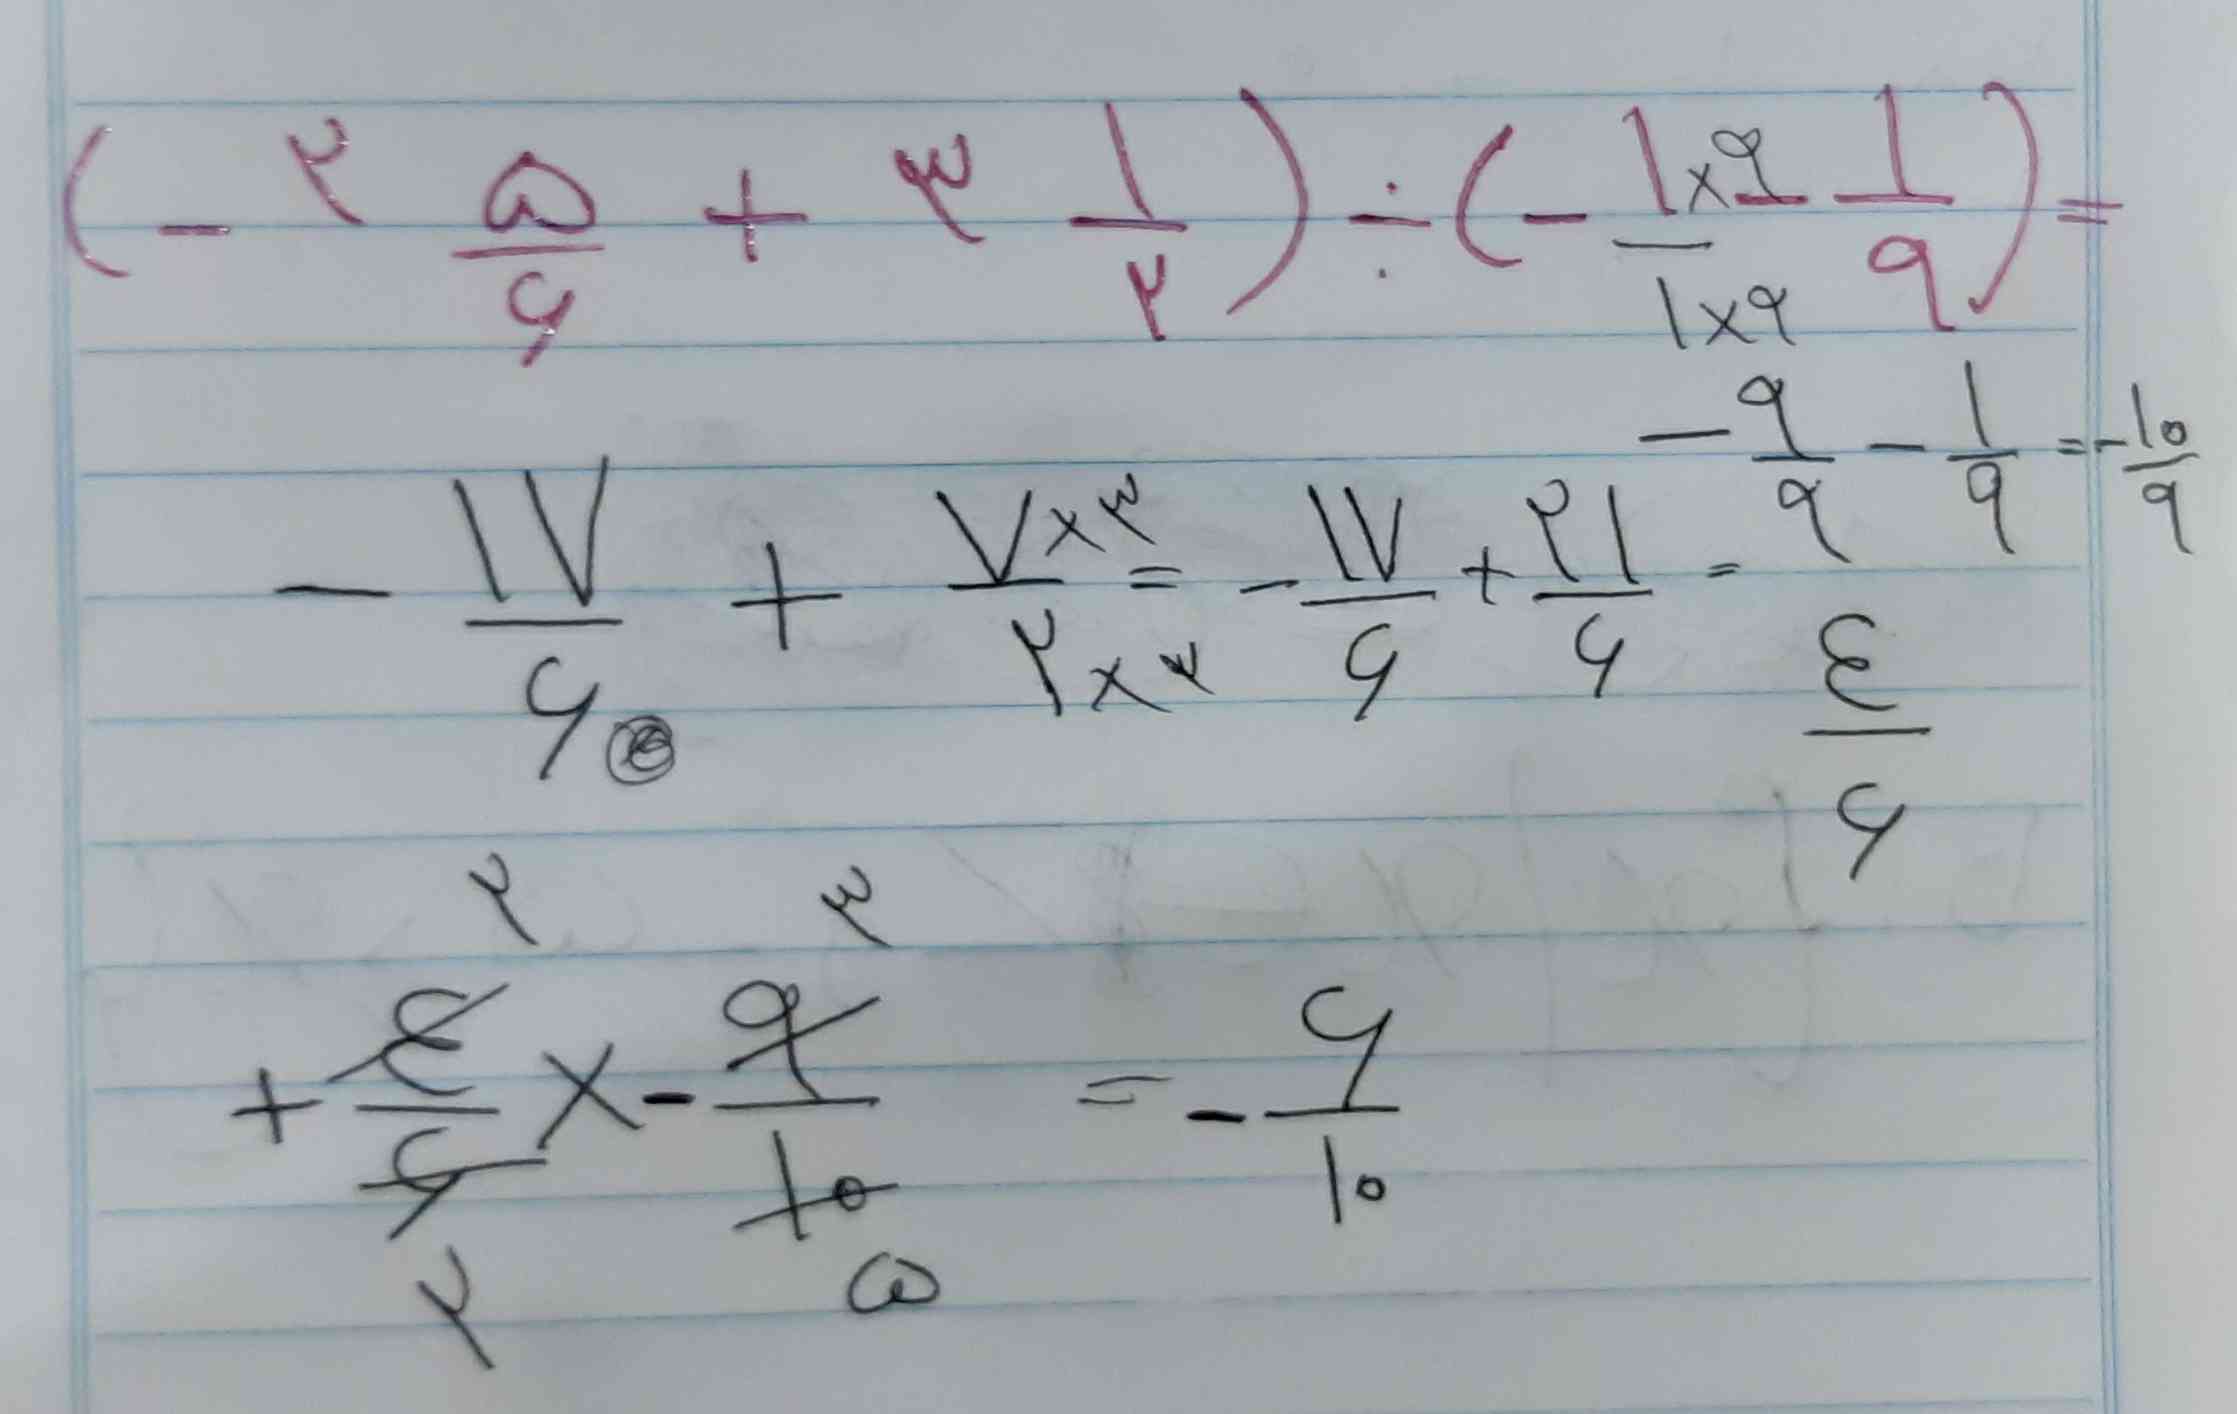 (- ۲ ۵/۶ + ۳ ۱/۲) ÷ (- ۱×۹/۱×۹ - ۱/۹) =
- ۹/۹ - ۱/۹ = - ۱۰/۹
- ۱۷/۶ + ۷×۳/۲×۳ = - ۱۷/۶ + ۲۱/۶ = ۴/۶
۲ ۳
+ ۴/۶ × - ۹/۱۰ = - ۶/۱۰
۲ ۵